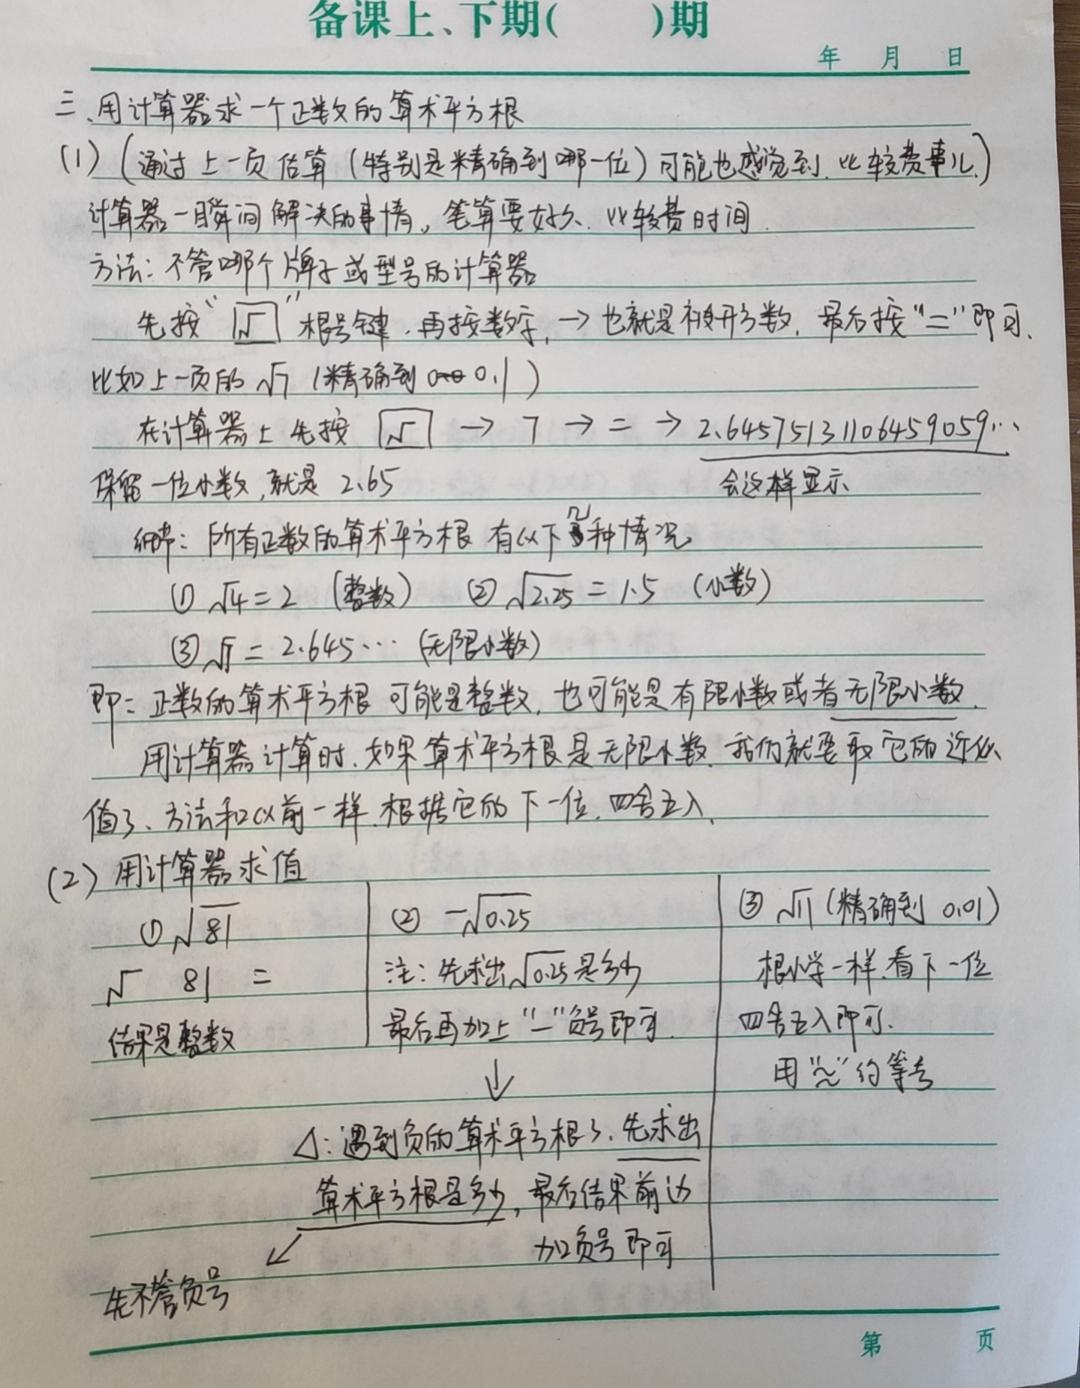 备课上、下期(　　)期
年　月　日
三、用计算器求一个正数的算术平方根
(1)(通过上一页估算(特别是精确到哪一位)可能也感觉到,比较费事儿.)
计算器一瞬间解决的事情。笔算要好久、比较费时间.
方法:不管哪个牌子或型号的计算器
先按"√"根号键.再按数字,→也就是被开方数.最后按"="即可.
比如上一页的√7(精确到0.1)
在计算器上先按√→7→=→2.64575131106459059…
保留一位小数,就是2.65　会这样显示
纳:所有正数的算术平方根有以下几种情况
①√4=2(整数)　②√2.25=1.5(小数)
③√7=2.645…(无限小数)
即:正数的算术平方根可能是整数,也可能是有限小数或者无限小数.
用计算器计算时.如果算术平方根是无限小数.我们就要取它的近似
值了、方法和以前一样.根据它的下一位.四舍五入.
(2)用计算器求值
①√81
√ 81 =
结果是整数
②-√0.25
注:先求出√0.25是多少
最后再加上"-"负号即可.
↓
△:遇到负的算术平方根了.先求出
算术平方根是多少,最后结果前边
加负号即可
先不管负号
③√11(精确到0.01)
根小学一样.看下一位
四舍五入即可.
用"≈"约等号
第　页